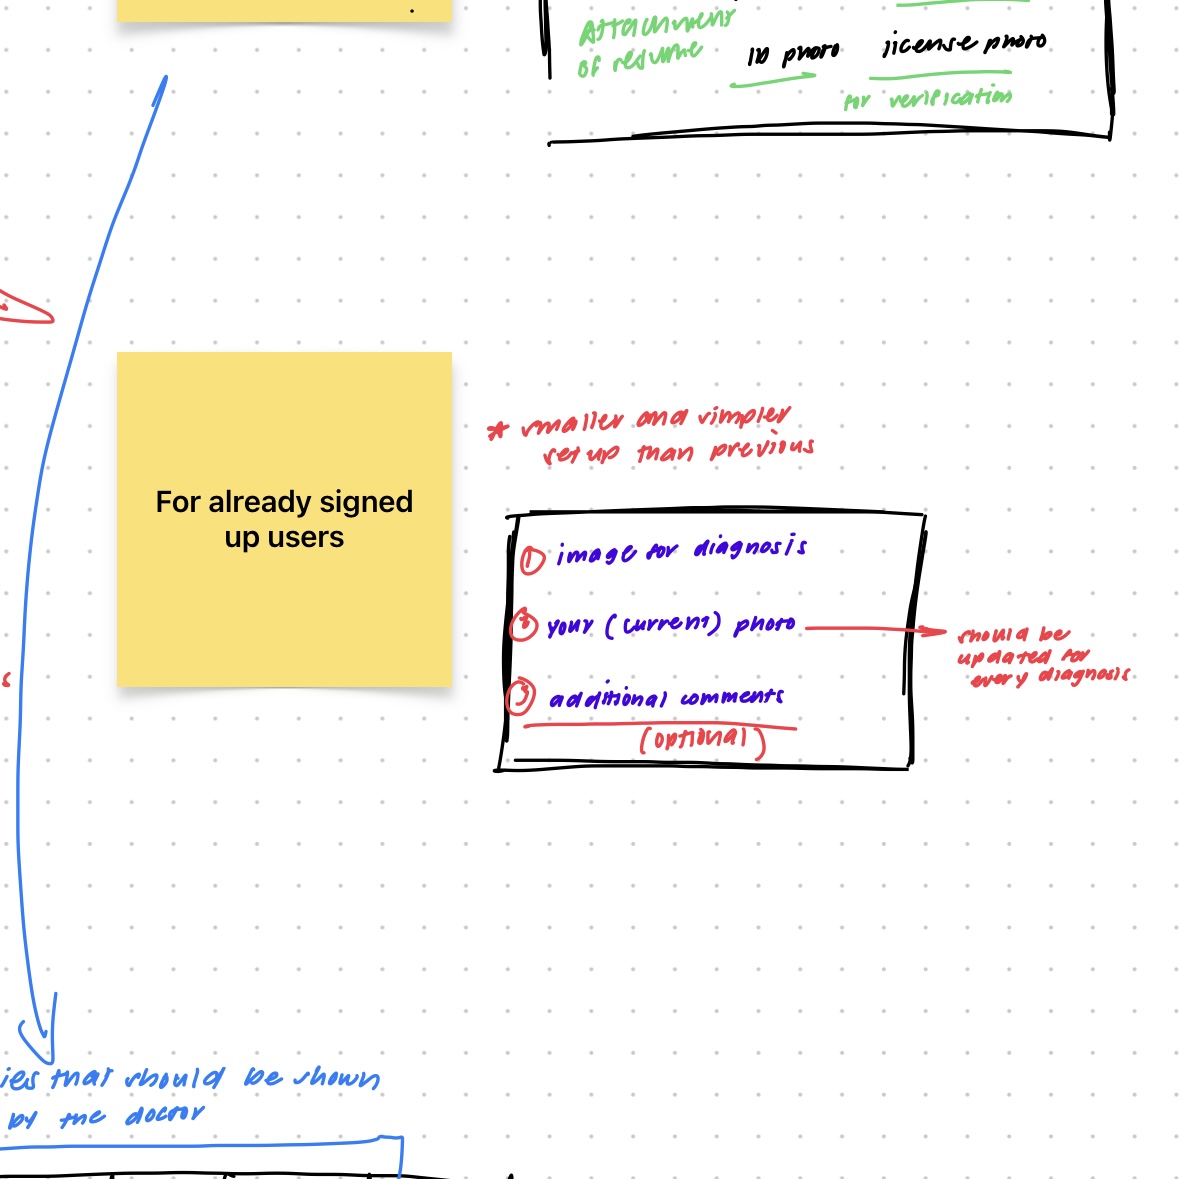 Attachment
of resume
ID photo
license photo
for verification
For already signed
up users
* smaller and simpler
set up than previous
① image for diagnosis
② your (current) photo
should be
updated for
every diagnosis
③ additional comments
(optional)
ies that should be shown
by the doctor